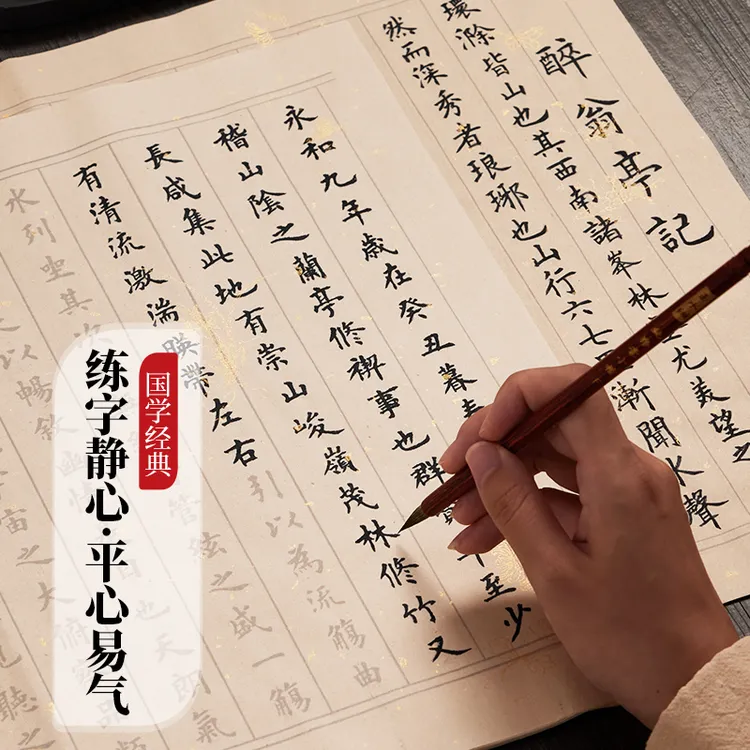 醉翁亭記
環滁皆山也其西南諸峯林尤美望之
然而深秀者琅琊也山行六七漸聞水聲
永和九年歲在癸丑暮春
稽山陰之蘭亭修禊事也群至少
長咸集此地有崇山峻嶺茂林修竹又
有清流激湍暎帶左右引以為流觴曲
水列坐其次管絃之盛一觴
以暢敘幽也天朗氣
宙之大俯品
聽之
国学经典
练字静心·平心易气